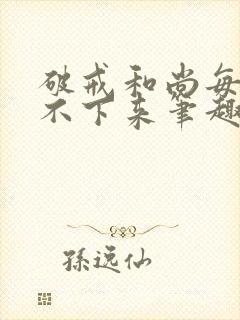 破戒和尚每
不下来笔趣
孫远仙